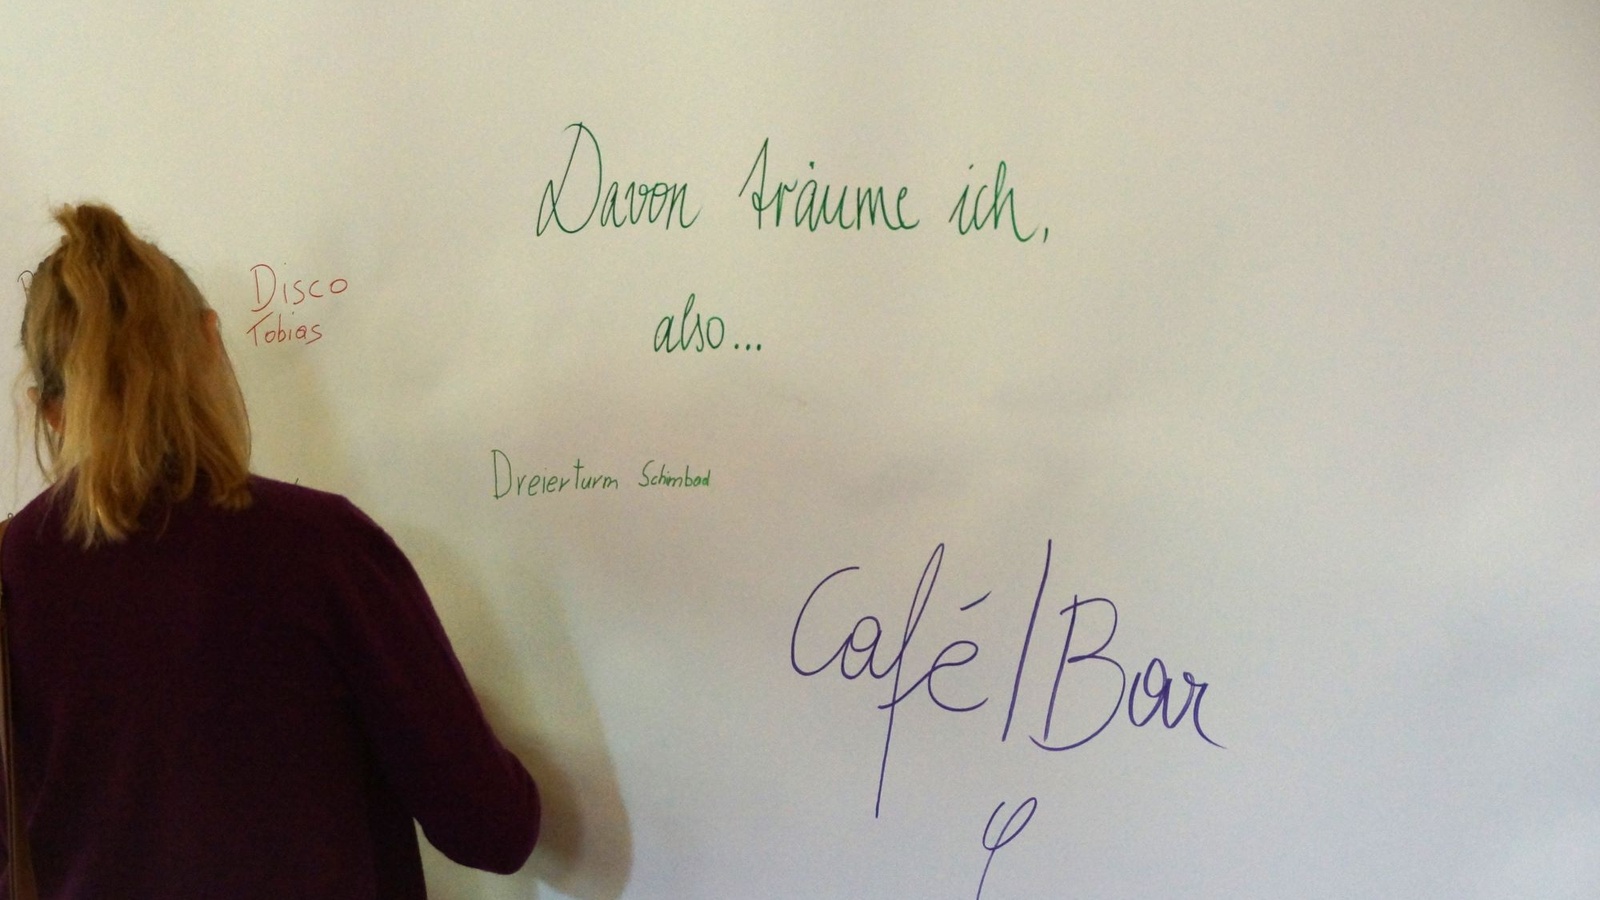 Davon träume ich,
also...
Disco
Tobias
Dreierturm Schimbad
Café/Bar